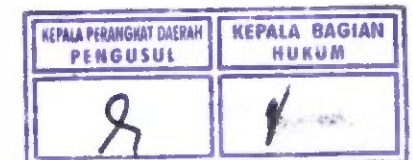 KEPALA PERANGKAT DAERAH
PENGUSUL
KEPALA BAGIAN
HUKUM